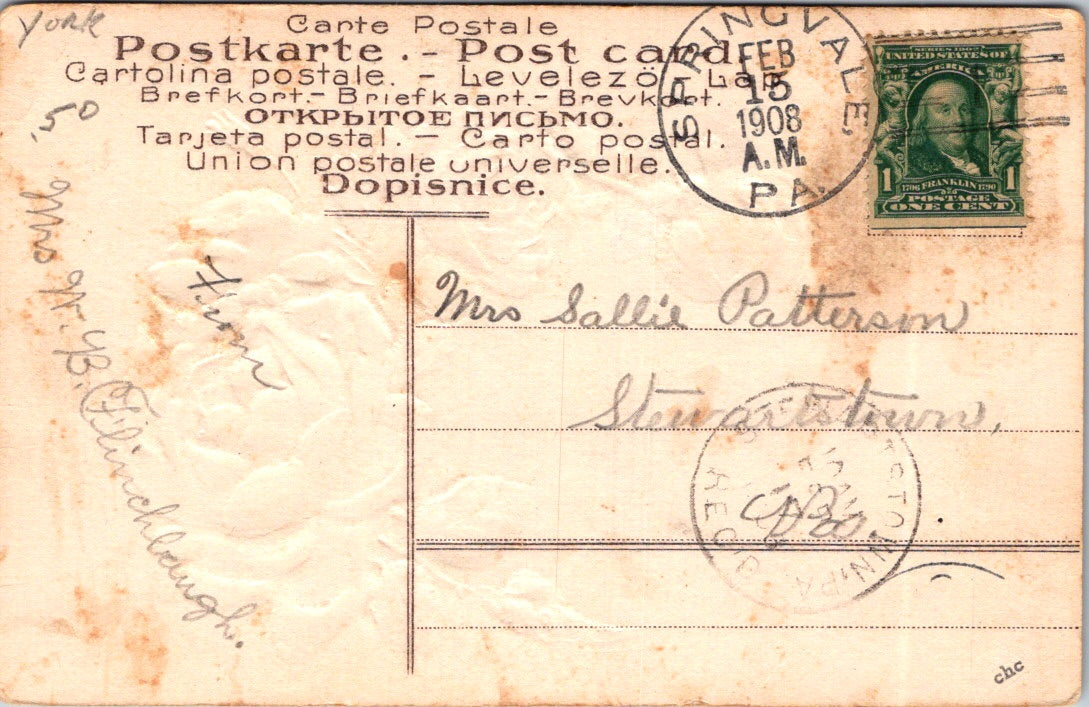 York
.50
Carte Postale
Postkarte. - Post card.
Cartolina postale. - Levelező Lap
Brefkort.- Briefkaart.- Brevkort.
ОТКРЫТОЕ ПИСЬМО.
Tarjeta postal. — Carto postal.
Union postale universelle.
Dopisnice.
SPRINGVALE,
FEB
15
1908
A.M.
PA.
SERIES 1902
UNITED STATES OF
AMERICA
1 1706 FRANKLIN 1790 1
POSTAGE
ONE CENT
From
Mrs W. B. Flinchbaugh.
Mrs Sallie Patterson
Stewartstown,
Pa
REC'D
chc